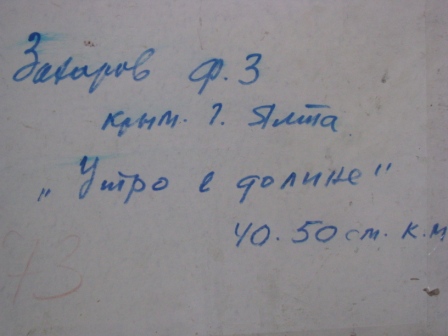 Захаров Ф.З
крым. г. Ялта
„Утро в долине"
40.50 см. к.м
73